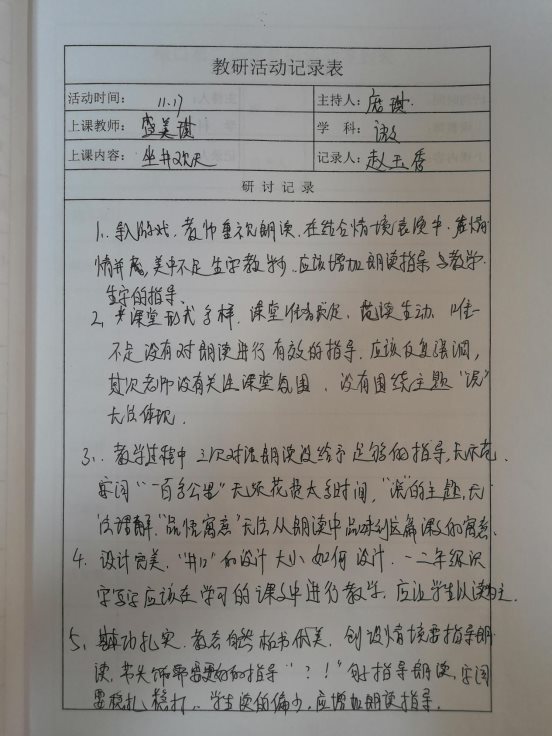 教研活动记录表
活动时间： 11.17 主持人：
上课教师：盛美谢 学 科：语文
上课内容：坐井观天 记录人：赵玉香
研 讨 记 录
1. 导入游戏，教师重视朗读，在结合情境表演中，声情
情并茂，美中不足生字教学少，应该增加朗读指导与教学
生字的指导。
2. 课堂形式多样，课堂准备充足，范读生动，唯一
不足没有对朗读进行有效的指导，应该反复强调，
其次老师没有关注课堂氛围，没有围绕主题"说"
无法体现。
3. 教学过程中 三次对话朗读没给予足够的指导，无示范，
字词"一百多公里"无须花费大多时间，"说"的主题，无
法理解，"品悟寓意"无法从朗读中品味到这篇课文的寓意。
4. 设计完美，"井口"的设计大小如何设计，一二年级识
字写字应该在学习的课文中进行教学，应让学生以读为主。
5. 基本功扎实，教态自然板书优美，创设情境要指导朗
读， 更好的指导"？！"的指导朗读，字词
要稳扎稳打，学生读的偏少，应增加朗读指导。